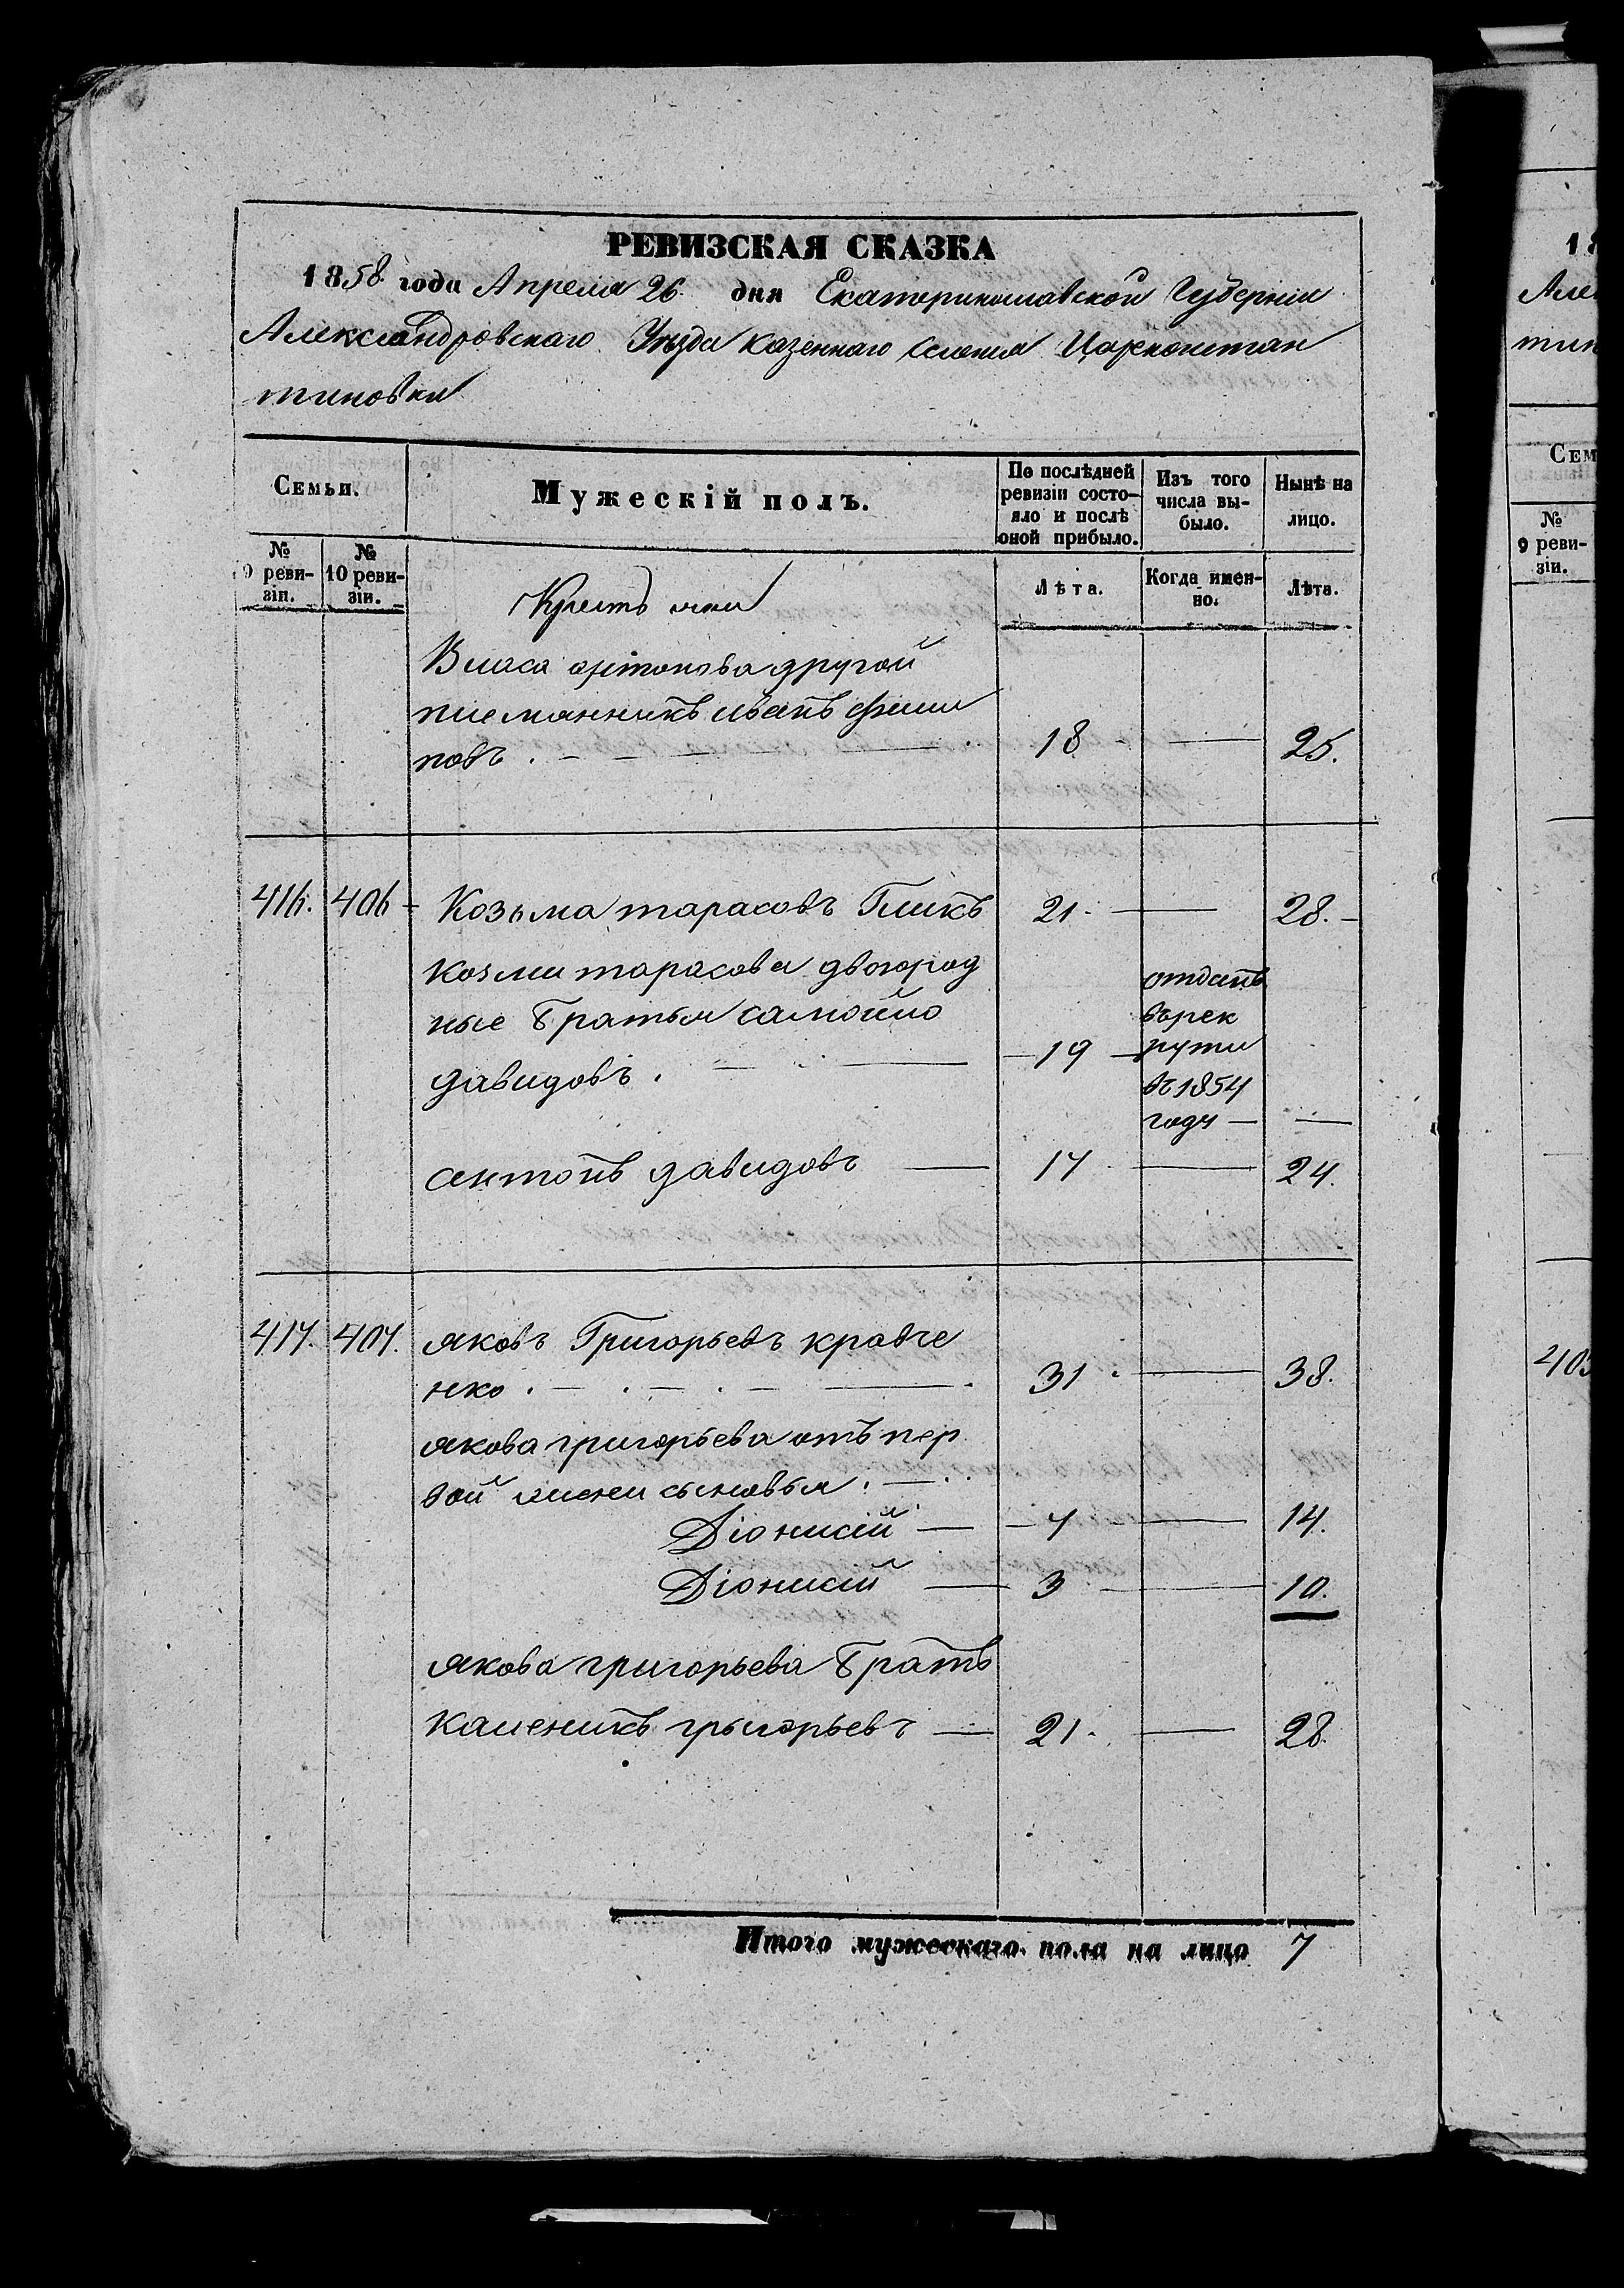 РЕВИЗСКАЯ СКАЗКА
1858 года Апреля 26 дня Екатеринославской Губернии
Александровскаго Уезда казеннаго селения Царконстан
тиновки
Семьи.
№ 9 реви-
зіи.
№ 10 реви-
зіи.
Мужескій полъ.
По послѣдней
ревизіи состо-
яло и послѣ
оной прибыло.
Изъ того
числа вы-
было.
Нынѣ на
лицо.
Лѣта.
Когда имен-
но.
Лѣта.
Крестьяни
Власа антонова другой
племянникъ иванъ филип
повъ 18 25.
416. 406 Козьма тарасовъ Гликъ 21 28.
козми тарасова двоюрод
ные братья самойло
давидовъ. 19
отданъ
върек
рути
въ 1854
году
антонъ давидовъ 17 24.
417. 407. яковъ Григорьевъ кравче
нко. 31 38.
якова григорьева отъ пер
вой жени сыновья.
Діонисій 7 14.
Діонисій 3 10.
якова григорьева братъ
каленикъ григорьевъ 21 28.
Итого мужескаго пола на лицо 7
18
Але
тин
Сем
№
9 реви-
зіи.